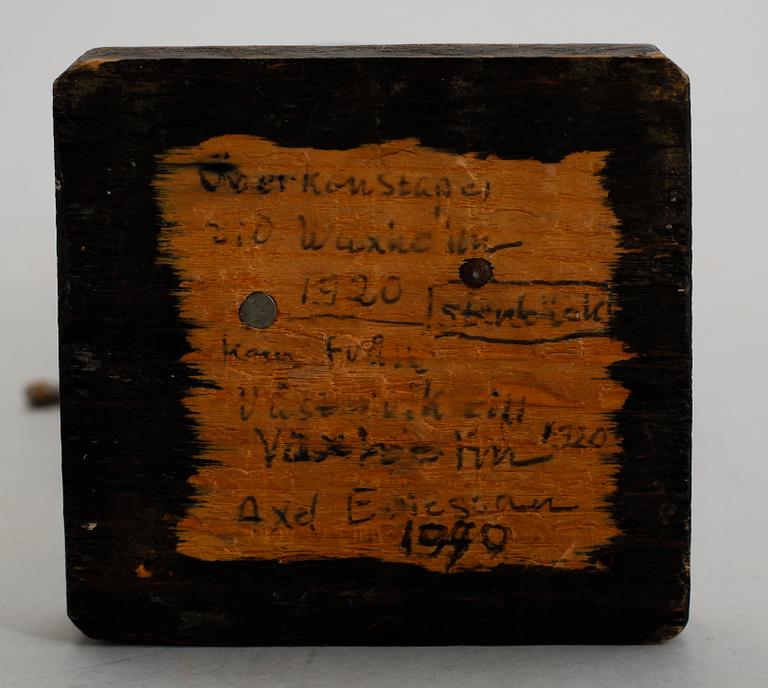 Överkonstapel
vid Waxholm
1920 Stenbäck
kom från
Västervik till
Vaxholm 1920
Axel Ericsson
1940